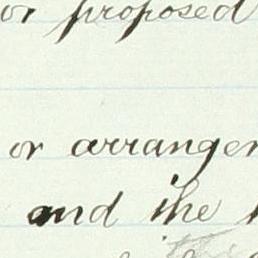 or proposed
or arrangem
and the